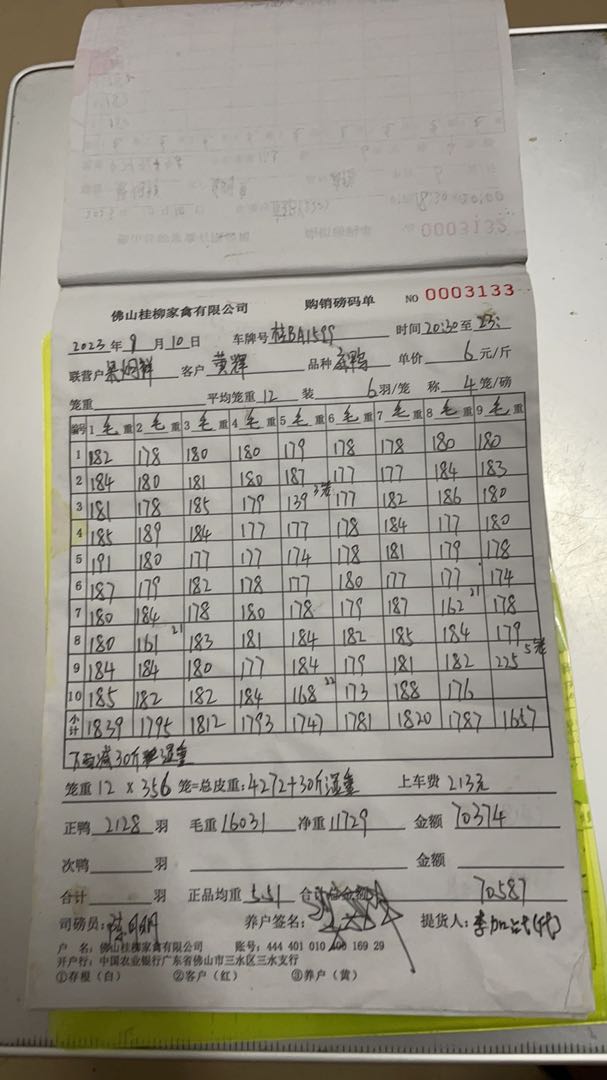 0003132
佛山桂柳家禽有限公司 购销磅码单 NO 0003133
2023年9月10日 车牌号 桂BA1589 时间 20:30至23:
联营户 客户 黄辉 品种 单价 6 元/斤
笼重 平均笼重 12 装 6 羽/笼 称 4 笼/磅
编号 1 毛重 2 毛重 3 毛重 4 毛重 5 毛重 6 毛重 7 毛重 8 毛重 9 毛重
1 182 178 180 180 179 178 178 180 180
2 184 180 181 180 187 177 177 184 183
3 181 178 185 179 139 3笼 177 182 186 180
4 185 189 184 177 177 178 184 177 180
5 191 180 177 177 174 178 181 179 178
6 187 179 182 178 177 180 177 177 174
7 180 184 178 180 178 179 187 162 21 178
8 180 161 21 183 181 184 182 185 184 179
9 184 184 180 177 184 179 181 182 225 5笼
10 185 182 182 184 168 22 173 188 176
小计 1839 1795 1812 1793 1747 1781 1820 1787 1657
下面减30斤 湿重
笼重 12 × 356 笼=总皮重:4272+30斤湿重 上车费 213元
正鸭 2128 羽 毛重 16031 净重 11729 金额 70374
次鸭 羽 金额
合计 羽 正品均重 5.51 合计总金额 70587
司磅员: 养户签名: 提货人:
户 名:佛山桂柳家禽有限公司 账号:444 401 010 400 169 29
开户行:中国农业银行广东省佛山市三水区三水支行
①存根(白) ②客户(红) ③养户(黄)